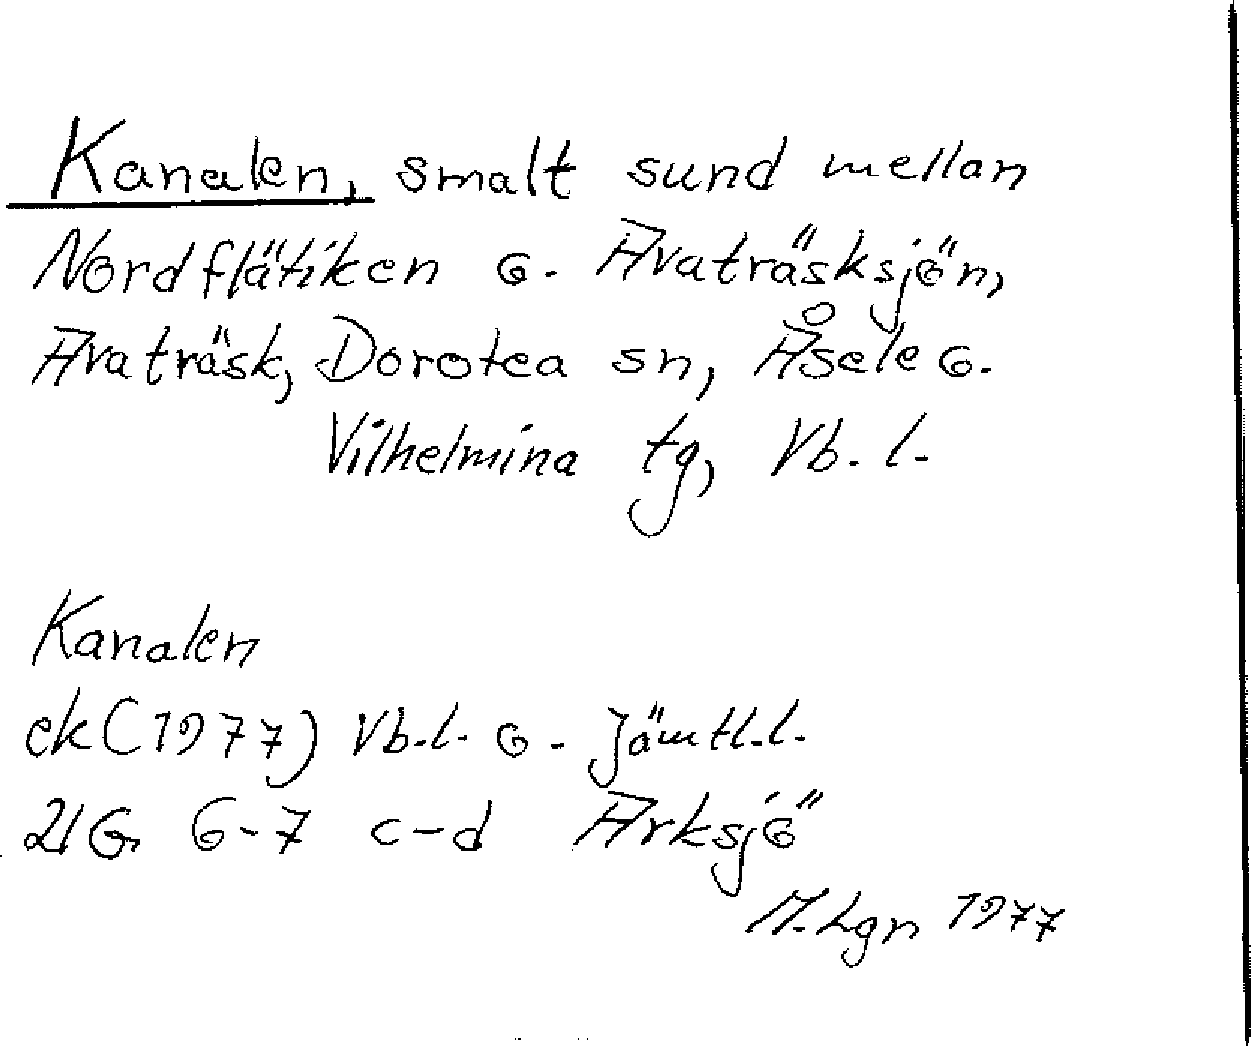 Kanalen, smalt sund mellan
Nordflätiken o. Avaträsksjön,
Avaträsk, Dorotea sn, Åsele o.
Vilhelmina tg, Vb. l.
Kanalen
ek (1977) Vb.l. o. Jämtl.l.
21G 6-7 c-d Arksjö
M. Lgn 1977